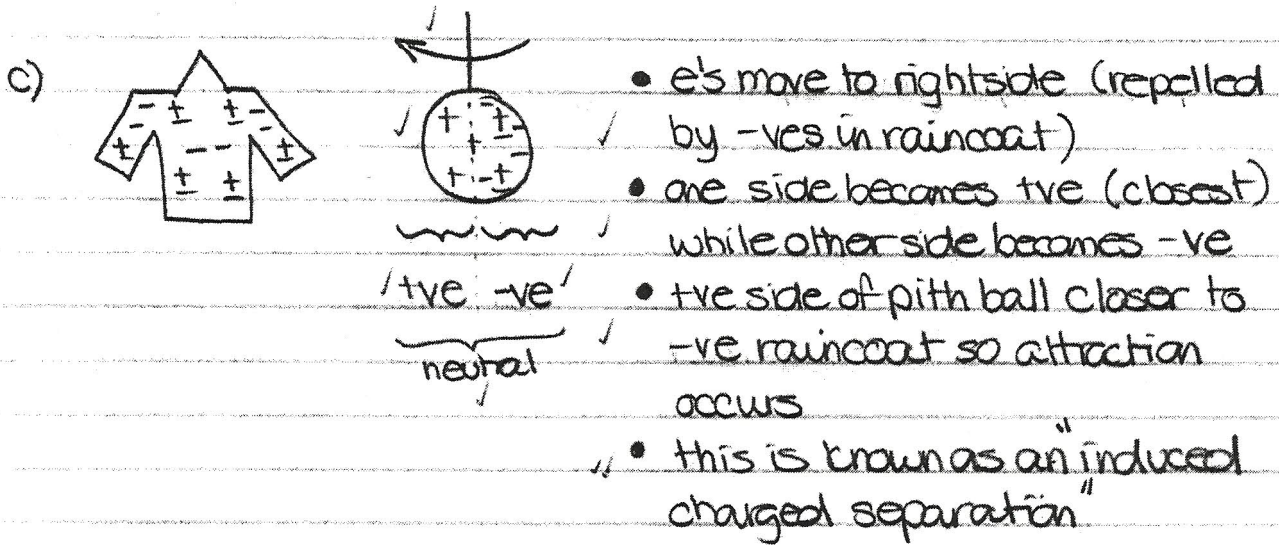 c)
• e's move to rightside (repelled
by -ves in raincoat)
• one side becomes +ve (closest)
while other side becomes -ve
+ve -ve
neutral
• +ve side of pith ball closer to
-ve raincoat so attraction
occurs
• this is known as an "induced
charged separation"